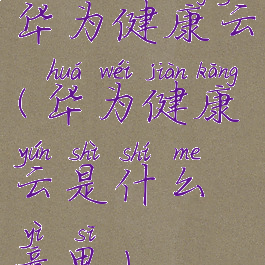 华为健康云
huá wéi jiàn kāng
(华为健康
yún shì shí me
云是什么
yì sī
意思)